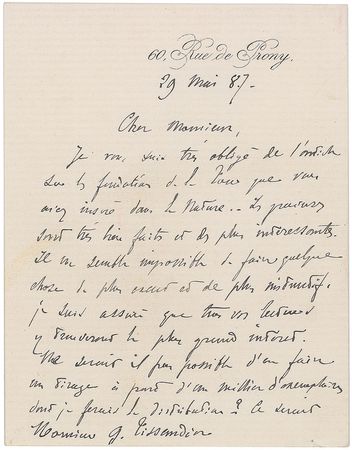 60, Rue de Prony.
29 Mai 87.
Cher Monsieur,
Je vous suis très obligé de l'article
sur les fondations de la Tour que vous
avez inséré dans la Nature. Les gravures
sont très bien faits et des plus intéressantes.
Il me semble impossible de faire quelque
chose de plus exact et de plus instructif,
je suis assuré que tous vos lecteurs
y trouveront le plus grand intérêt.
Me serait il pas possible d'en faire
un tirage à part d'un millier d'exemplaires
dont je ferais la distribution? Ce serait
Monsieur G. Tissandier